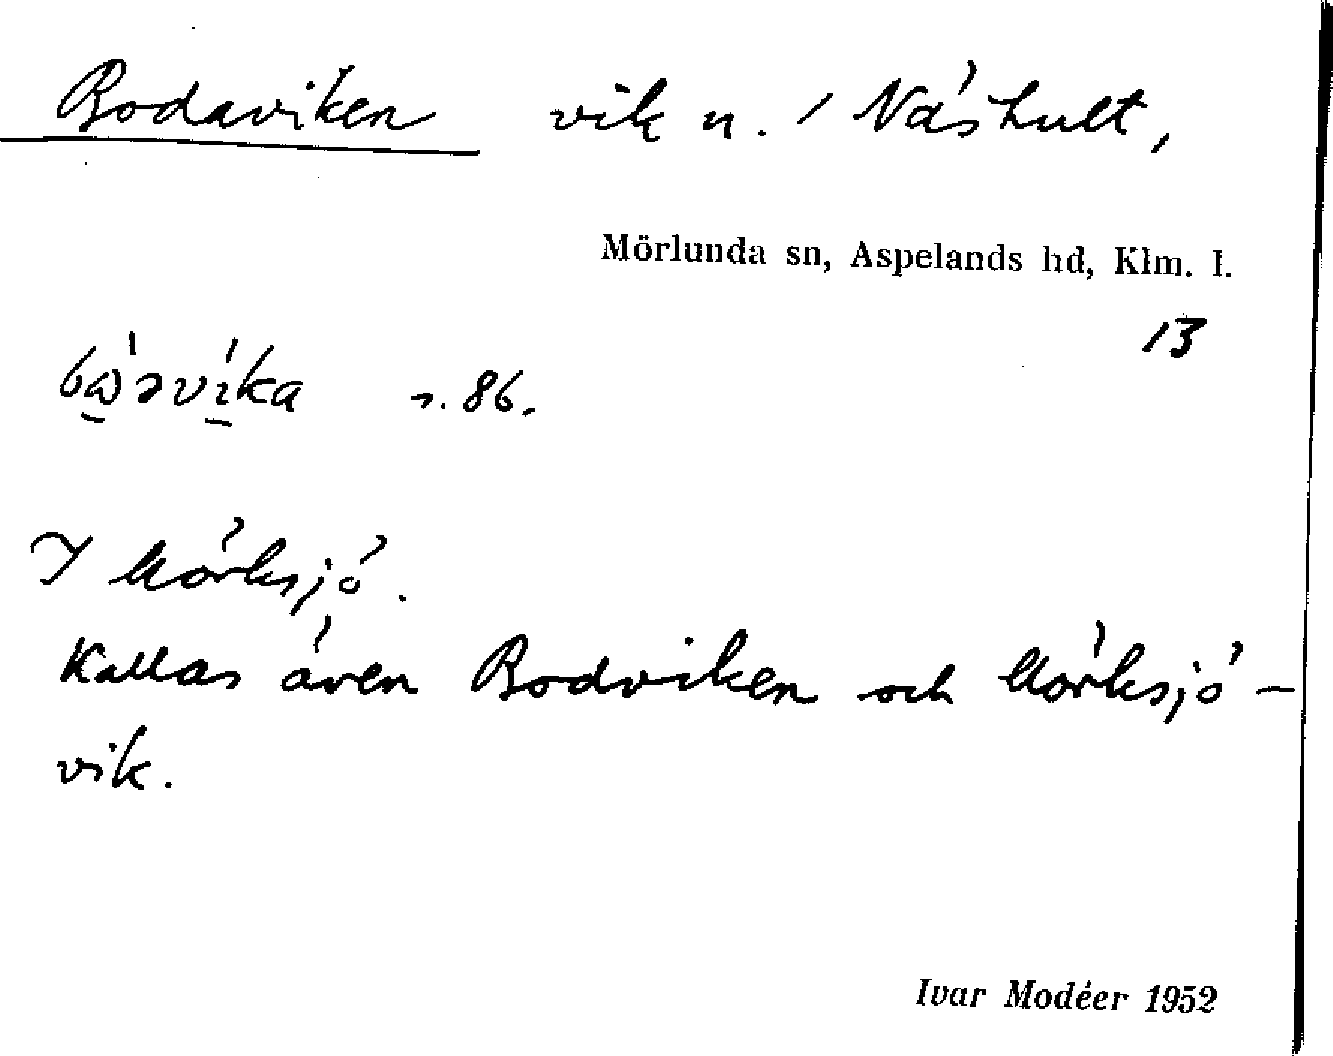 Bodaviken vik u. / Näshult,
Mörlunda sn, Aspelands hd, Klm. l.
13
s. 86.
I Mörksjö.
Kallas även Bodviken och Mörksjö-
vik.
Ivar Modéer 1952